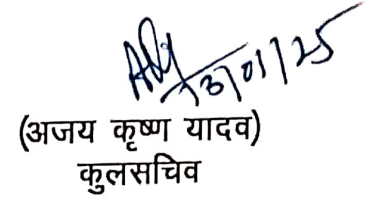 13/01/25
(अजय कृष्ण यादव)
कुलसचिव